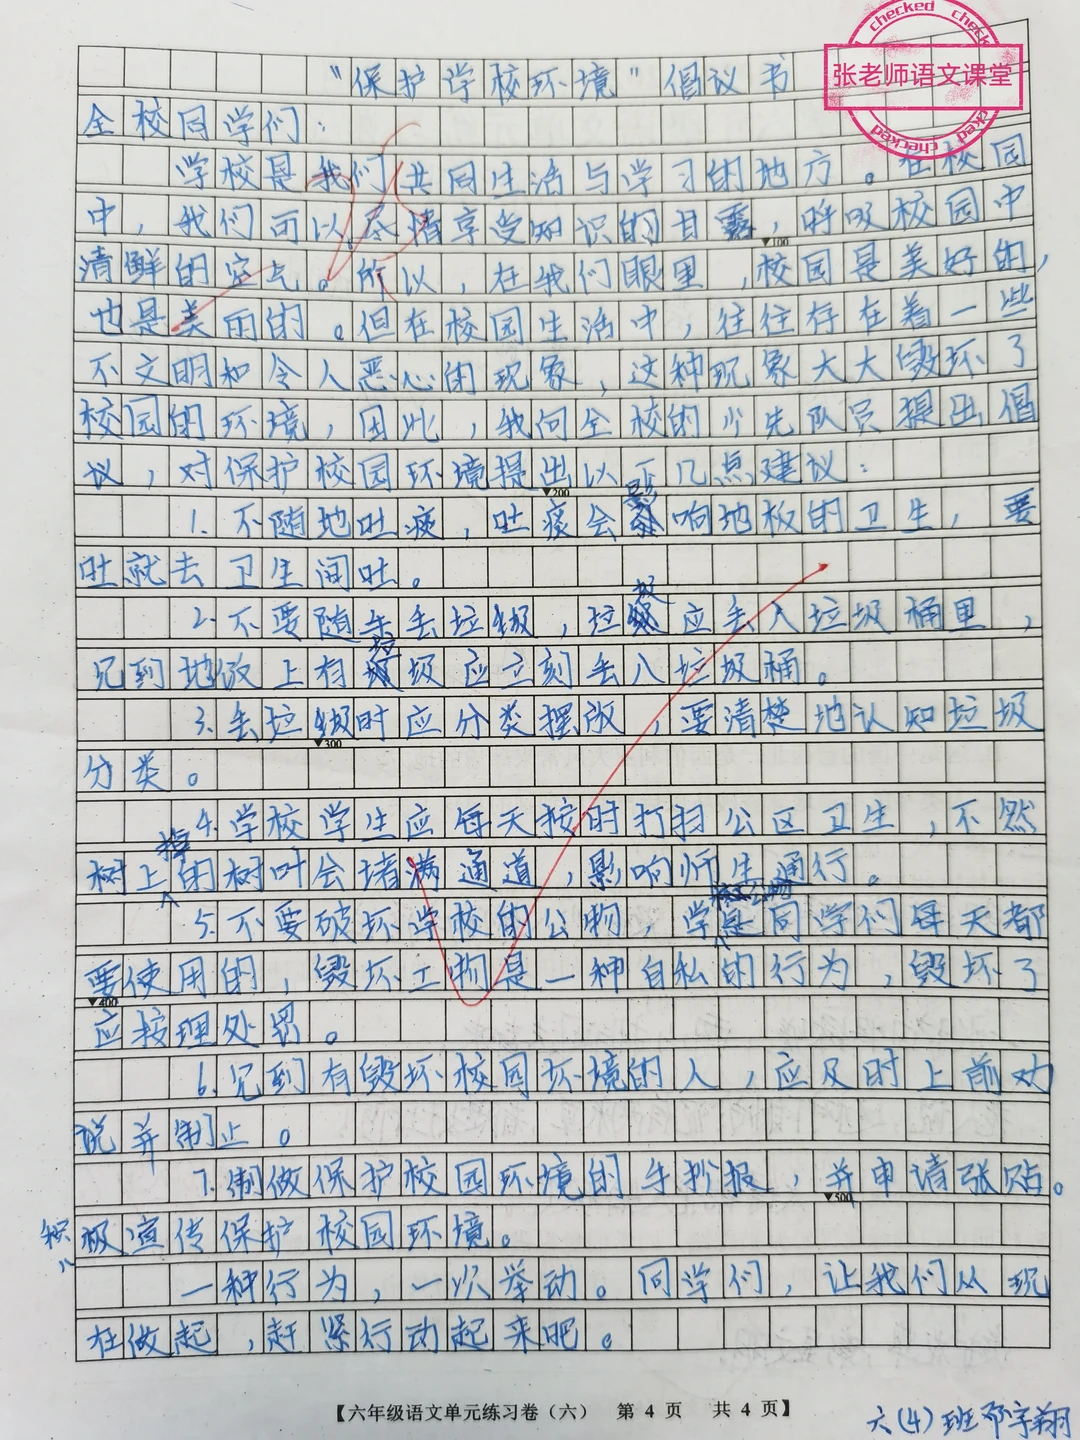 checked
张老师语文课堂
checked
“保护学校环境”倡议书
全校同学们：
学校是我们共同生活与学习的地方。在校园
中，我们可以尽情享受知识的甘露，呼吸校园中
清鲜的空气。所以，在我们眼里，校园是美好的，
也是美丽的。但在校园生活中，往往存在着一些
不文明和令人恶心的现象，这种现象大大毁坏了
校园的环境，因此，我向全校的少先队员提出倡
议，对保护校园环境提出以下几点建议：
1.不随地吐痰，吐痰会影响地板的卫生，要
吐就去卫生间吐。
2.不要随手丢垃圾，垃圾应丢入垃圾桶里，
见到地板上有垃圾应立刻丢入垃圾桶。
3.丢垃圾时应分类摆放，要清楚地认知垃圾
分类。
4.学校学生应每天按时打扫公区卫生，不然
树上掉的树叶会堵满通道，影响师生通行。
5.不要破坏学校的公物，学校公物是同学们每天都
要使用的，毁坏工物是一种自私的行为，毁坏了
应按理处罚。
6.见到有毁坏校园环境的人，应及时上前劝
说并制止。
7.制做保护校园环境的手抄报，并申请张贴。
积极宣传保护校园环境。
一种行为，一次举动。同学们，让我们从现
在做起，赶紧行动起来吧。
▼100
▼200
▼300
▼400
▼500
【六年级语文单元练习卷（六） 第 4 页 共 4 页】
六(4)班邓宇翔